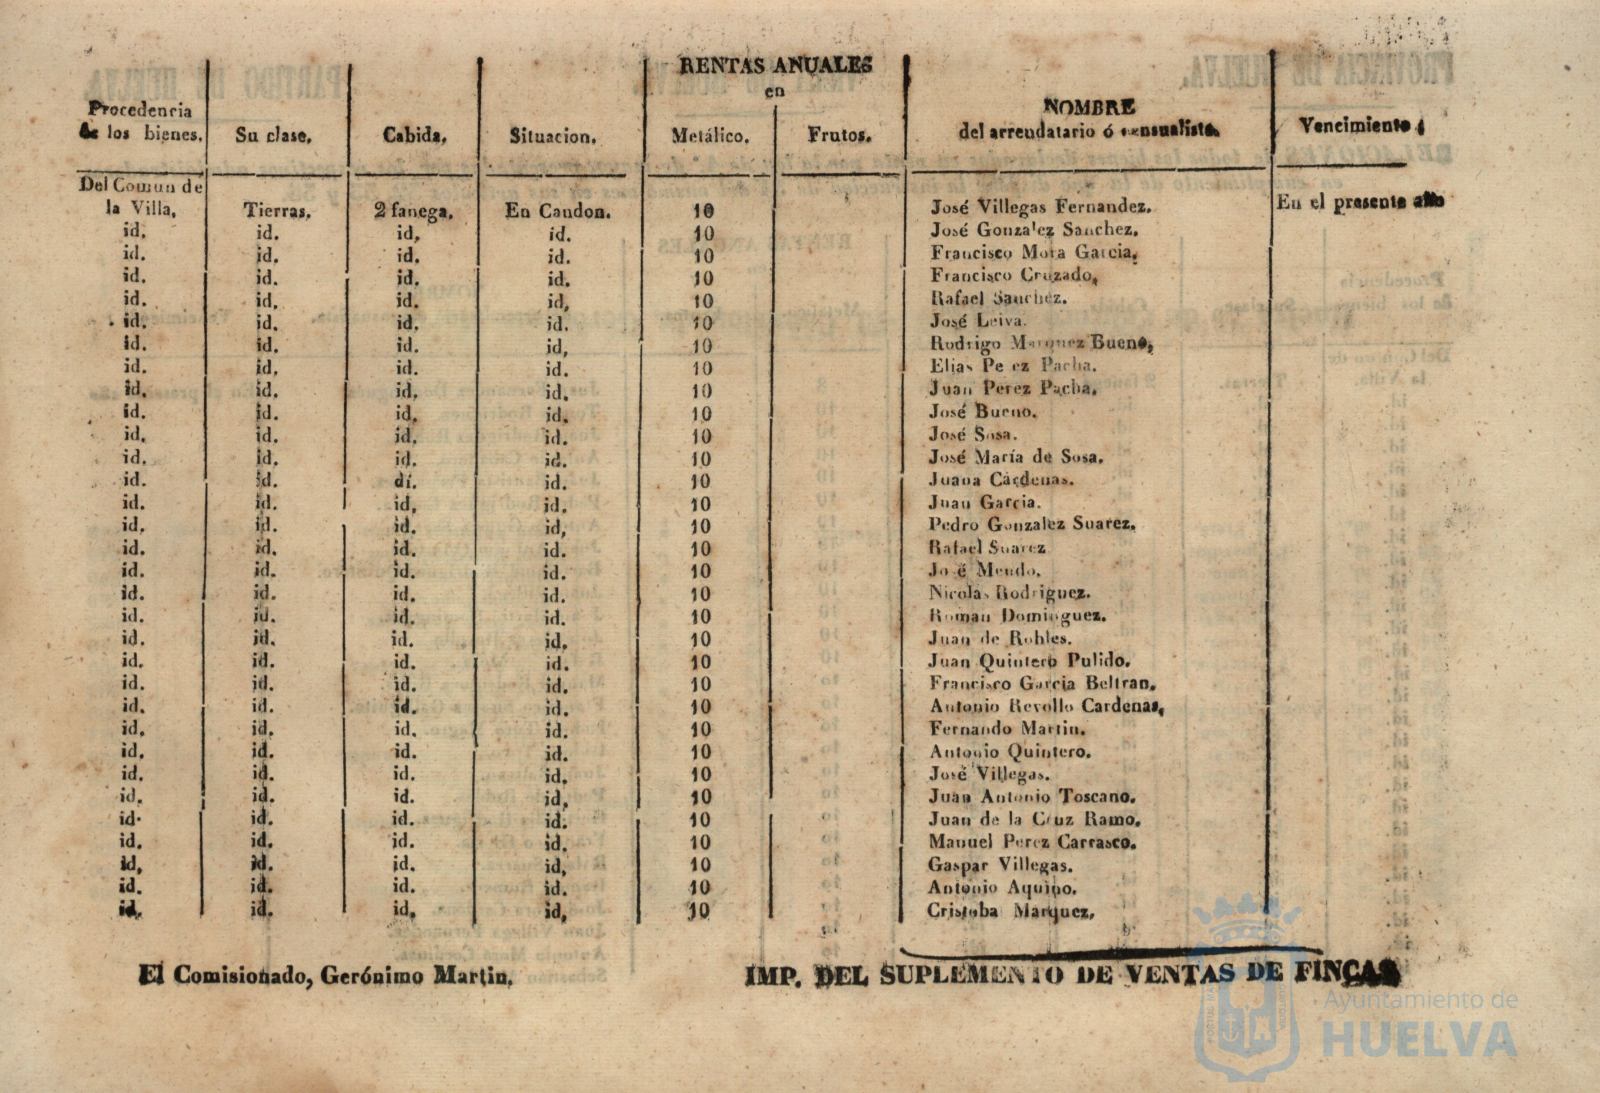 RENTAS ANUALES
en
Procedencia de los bienes. Su clase. Cabida. Situacion. Metálico. Frutos. NOMBRE del arrendatario ó censualista. Vencimiento.
Del Comun de la Villa. Tierras. 2 fanega. En Caudon. 10 José Villegas Fernandez. En el presente año
id. id. id. id. 10 José Gonzalez Sanchez.
id. id. id. id. 10 Francisco Mora Garcia.
id. id. id. id. 10 Francisco Cruzado.
id. id. id. id. 10 Rafael Sanchez.
id. id. id. id. 10 José Leiva.
id. id. id. id. 10 Rodrigo Marquez Bueno.
id. id. id. id. 10 Elias Pe ez Pacha.
id. id. id. id. 10 Juan Perez Pacha.
id. id. id. id. 10 José Bueno.
id. id. id. id. 10 José Sosa.
id. id. id. id. 10 José María de Sosa.
id. id. di. id. 10 Juana Cárdenas.
id. id. id. id. 10 Juan Garcia.
id. id. id. id. 10 Pedro Gonzalez Suarez.
id. id. id. id. 10 Rafael Suarez
id. id. id. id. 10 Jo é Mendo.
id. id. id. id. 10 Nicolás Rodriguez.
id. id. id. id. 10 Roman Dominguez.
id. id. id. id. 10 Juan de Robles.
id. id. id. id. 10 Juan Quintero Pulido.
id. id. id. id. 10 Francisco Garcia Beltran.
id. id. id. id. 10 Antonio Revollo Cardenas.
id. id. id. id. 10 Fernando Martin.
id. id. id. id. 10 Antonio Quintero.
id. id. id. id. 10 José Villegas.
id. id. id. id. 10 Juan Antonio Toscano.
id. id. id. id. 10 Juan de la Cruz Ramo.
id. id. id. id. 10 Manuel Perez Carrasco.
id. id. id. id. 10 Gaspar Villegas.
id. id. id. id. 10 Antonio Aquino.
id. id. id. id. 10 Cristoba Marquez.
El Comisionado, Gerónimo Martin. IMP. DEL SUPLEMENTO DE VENTAS DE FINCAS
Ayuntamiento de
HUELVA